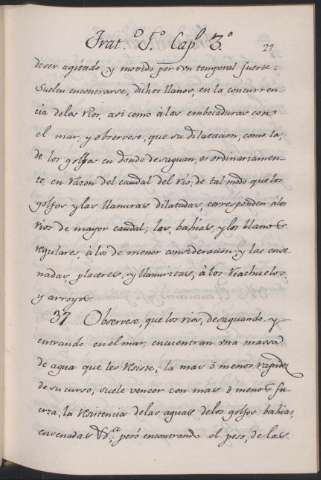 Trat.º 5.º Cap.º 3.º 29
de ser agitado y movido por un temporal fuerte.
Suelen encontrarse, dichos llanos, en la concurren
cia de los rios, asi como à las embocaduras con
el mar, y observese, que su dilatacion, como la
de los golfos en donde desaguan, es ordinariamen
te, en razon del caudal del rio, de tal modo que los
golfos y las llanuras dilatadas, corresponden à los
rios de mayor caudal; las bahias, y los llanos
regulares, à los de menor consideracion y las ense
nadas, placeres, y llanuritas, à los riachuelos
y arroyos.
37 Observese, que los rios, desaguando, y
entrando en el mar, encuentran una masa
de agua que les resiste, la mas ò menos rapidez
de su curso, suele vencer con mas ò menos fu
erza, la resistencia de las aguas de los golfos bahias,
ensenadas &.ª pero encontrando el peso, de las